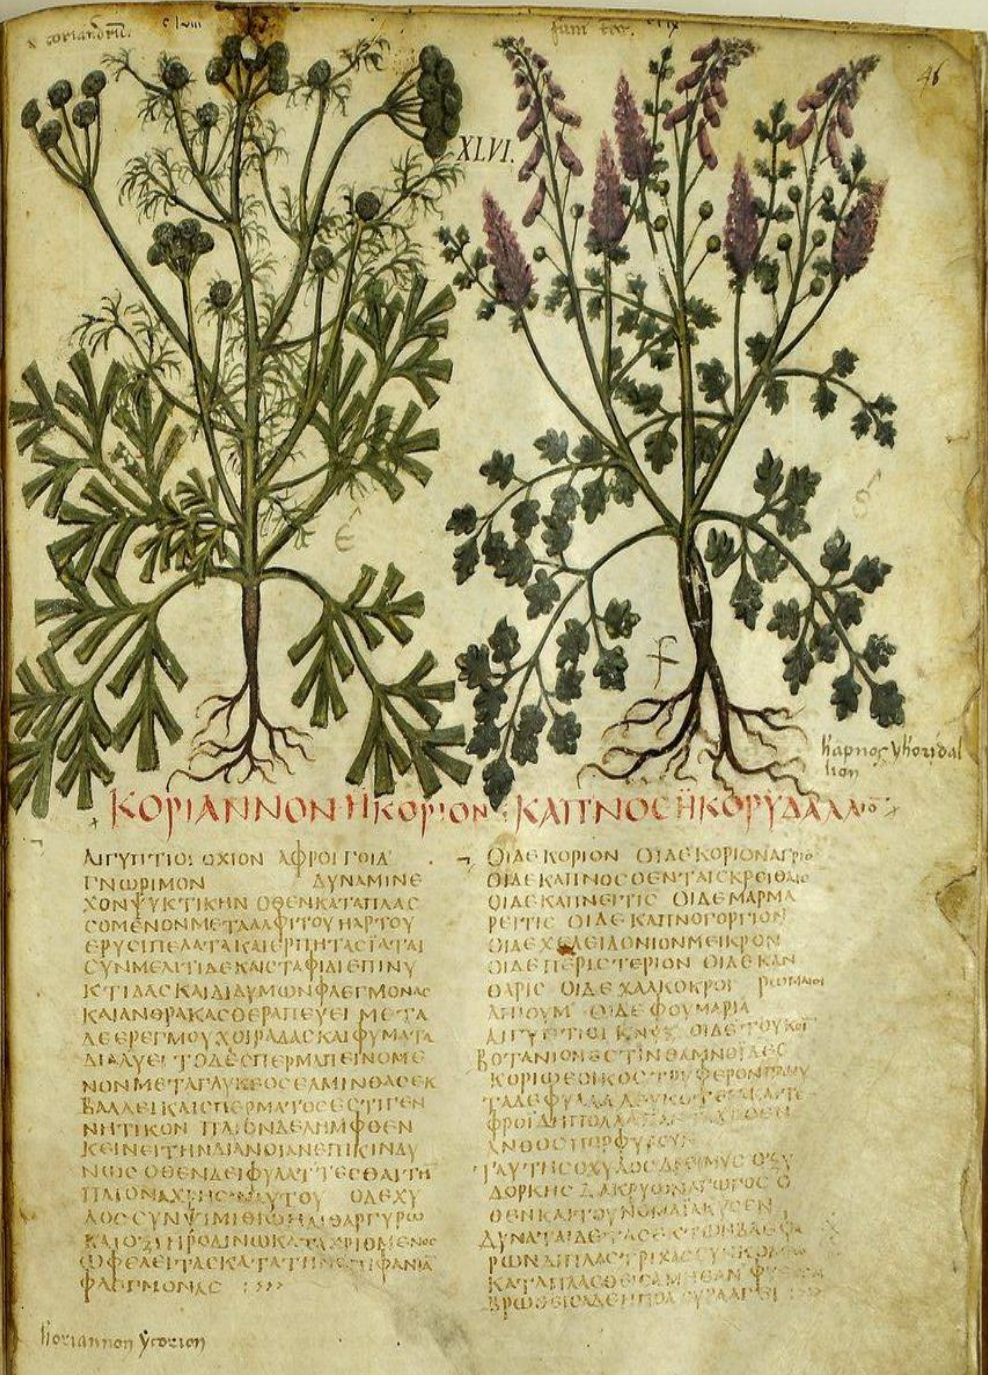 coriandrũ.
clviii
fum ter.
46
XLVI.
έ
ς
kapnos ykoridal
lion
ΚΟΡΙΑΝΝΟΝ Η ΚΟΡΙΟΝ
ΑΙΓΥΠΤΙΟΙ ΟΧΙΟΝ ΑΦΡΟΙ ΓΟΙΔ
ΓΝΩΡΙΜΟΝ ΔΥΝΑΜΙΝ Ε
ΧΟΝ ΨΥΚΤΙΚΗΝ ΟΘΕΝ ΚΑΤΑΠΛΑC
CΟΜΕΝΟΝ ΜΕΤΑ ΑΛΦΙΤΟΥ Η ΑΡΤΟΥ
ΕΡΥCΙΠΕΛΑΤΑ ΚΑΙ ΕΡΠΗΤΑC ΙΑΤΑΙ
CΥΝ ΜΕΛΙΤΙ ΔΕ ΚΑΙ CΤΑΦΙΔΙ ΕΠΙΝΥ
ΚΤΙΔΑC ΚΑΙ ΔΙΔΥΜΩΝ ΦΛΕΓΜΟΝΑC
ΚΑΙ ΑΝΘΡΑΚΑC ΘΕΡΑΠΕΥΕΙ ΜΕΤΑ
ΔΕ ΕΡΕΓΜΟΥ ΧΟΙΡΑΔΑC ΚΑΙ ΦΥΜΑΤΑ
ΔΙΑΛΥΕΙ ΤΟ ΔΕ CΠΕΡΜΑ ΠΕΙΝΟΜΕ
ΝΟΝ ΜΕΤΑ ΓΛΥΚΕΟC ΕΛΜΙΝΘΑC ΕΚ
ΒΑΛΛΕΙ ΚΑΙ CΠΕΡΜΑΤΟC ΕCΤΙ ΓΕΝ
ΝΗΤΙΚΟΝ ΠΛΙΟΝ ΔΕ ΛΗΜΦΘΕΝ
ΚΕΙΝΕΙ ΤΗΝ ΔΙΑΝΟΙΑΝ ΕΠΙΚΙΝΔΥ
ΝΩC ΟΘΕΝ ΔΕΙ ΦΥΛΑΤΤΕCΘΑΙ ΤΗ
ΑΥΤΟΥ Ο ΔΕ ΧΥ
ΛΟC CΥΝ ΨΙΜΙΘΙΩ Η ΛΙΘΑΡΓΥΡΩ
ΚΑΙ ΟΞΙ ΡΟΔΙΝΩ ΚΑΤΑΧΡΙΟΜΕΝΟC
ΩΦΕΛΕΙ ΤΑC ΚΑΤΑ ΤΗΝ ΕΠΙΦΑΝΙΑ
ΦΛΕΓΜΟΝΑC
koriannon ycorion
ΚΑΠΝΟC Η ΚΟΡΥΔΑΛΛΙΟ
ΟΙ ΔΕ ΚΟΡΙΟΝ ΟΙ ΔΕ ΚΟΡΙΟΝ ΑΓΡΙΟ
ΟΙ ΔΕ ΚΑΠΝΟC Ο ΕΝ ΤΑΙC ΚΡΕΙΘΑΙC
ΟΙ ΔΕ ΚΑΠΝΕΙΤΙC ΟΙ ΔΕ ΜΑΡΜΑ
ΡΕΙΤΙC ΟΙ ΔΕ ΚΑΠΝΟΓΟΡΓΙΟΝ
ΟΙ ΔΕ ΧΕΛΕΙΔΟΝΙΟΝ ΜΕΙΚΡΟΝ
ΟΙ ΔΕ ΠΕΡΙCΤΕΡΙΟΝ ΟΙ ΔΕ ΚΑΝ
ΘΑΡΙC ΟΙ ΔΕ ΧΑΛΚΟΚΡΟΙ ΡΩΜΑΙΟΙ
ΑΠΙΟΥΜ ΟΙ ΔΕ ΦΟΥΜΑΡΙΑ
ΑΙΓΥΠΤΙΟΙ ΚΝΥΞ ΟΙ ΔΕ ΤΟΥΚΙ
ΒΟΤΑΝΙΟΝ ΕCΤΙΝ ΘΑΜΝΟΙΔΕC
ΚΟΡΙΩ ΕΟΙΚΟC ΤΡΥΦΕΡΟΝ ΠΑΝΥ
ΤΑ ΔΕ ΦΥΛΛΑ ΛΕΥΚΟΤΕΡΑ
ΑΝΘΟC ΠΟΡΦΥΡΟΥΝ
ΤΑΥΤΗC Ο ΧΥΛΟC ΔΡΕΙΜΥC ΟΞΥ
ΔΟΡΚΗC ΔΑΚΡΥΩΝ ΑΓΩΓΟC Ο
ΘΕΝ ΚΑΙ ΤΟΥΝΟΜΑ
ΔΥΝΑΤΑΙ ΔΕ
ΡΩΝ ΑΠΛΑC ΤΡΙΧΑC CΥΝ ΚΟΜΜ
ΚΑΤΑΠΛΑCΘΕΙCΑ
ΒΡΩΘΕΙCΑ ΔΕ